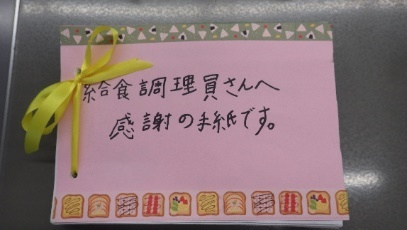 給食調理員さんへ
感謝の手紙です。